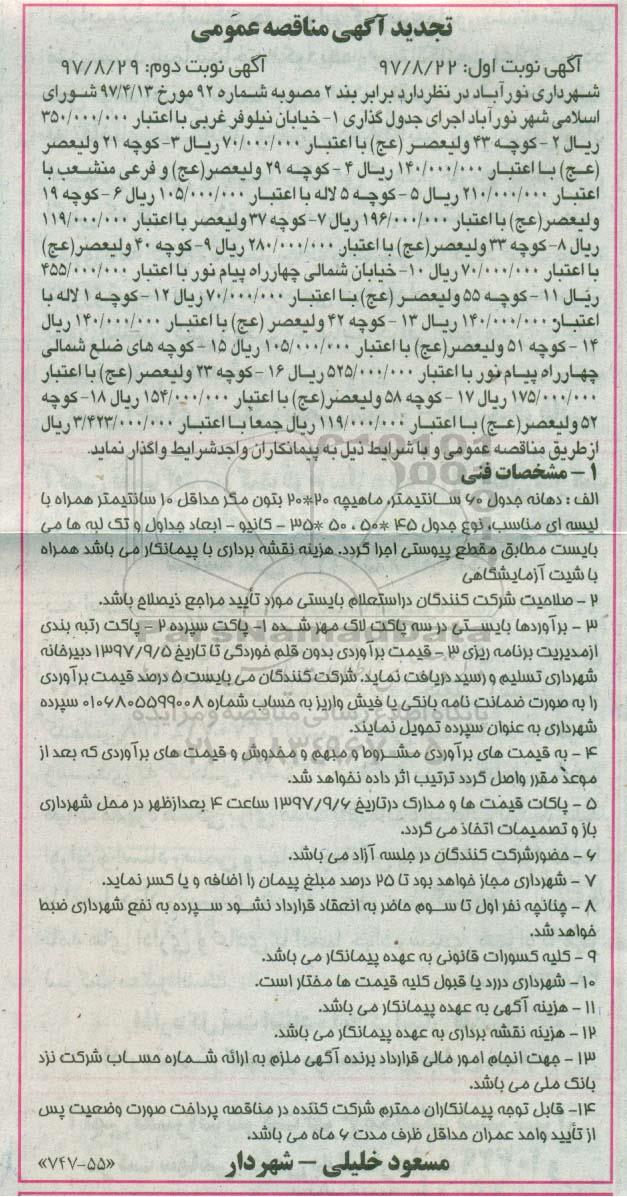 تجدید آگهی مناقصه عمومی
آگهی نوبت اول: ۹۷/۸/۲۲ آگهی نوبت دوم: ۹۷/۸/۲۹
شهرداری نورآباد در نظر دارد برابر بند ۲ مصوبه شماره ۹۲ مورخ ۹۷/۴/۱۳ شورای
اسلامی شهر نورآباد اجرای جدول گذاری ۱- خیابان نیلوفر غربی با اعتبار ۳۵۰/۰۰۰/۰۰۰
ریال ۲- کوچه ۴۳ ولیعصر (عج) با اعتبار ۷۰/۰۰۰/۰۰۰ ریال ۳- کوچه ۲۱ ولیعصر
(عج) با اعتبار ۱۴۰/۰۰۰/۰۰۰ ریال ۴- کوچه ۲۹ ولیعصر(عج) و فرعی منشعب با
اعتبار ۲۱۰/۰۰۰/۰۰۰ ریال ۵- کوچه ۵ لاله با اعتبار ۱۰۵/۰۰۰/۰۰۰ ریال ۶- کوچه ۱۹
ولیعصر(عج) با اعتبار ۱۹۶/۰۰۰/۰۰۰ ریال ۷- کوچه ۳۷ ولیعصر با اعتبار ۱۱۹/۰۰۰/۰۰۰
ریال ۸- کوچه ۳۳ ولیعصر(عج) با اعتبار ۲۸۰/۰۰۰/۰۰۰ ریال ۹- کوچه ۴۰ ولیعصر(عج)
با اعتبار ۷۰/۰۰۰/۰۰۰ ریال ۱۰- خیابان شمالی چهارراه پیام نور با اعتبار ۴۵۵/۰۰۰/۰۰۰
ریال ۱۱- کوچه ۵۵ ولیعصر (عج) با اعتبار ۷۰/۰۰۰/۰۰۰ ریال ۱۲- کوچه ۱ لاله با
اعتبار ۱۴۰/۰۰۰/۰۰۰ ریال ۱۳- کوچه ۴۲ ولیعصر (عج) با اعتبار ۱۴۰/۰۰۰/۰۰۰ ریال
۱۴- کوچه ۵۱ ولیعصر(عج) با اعتبار ۱۰۵/۰۰۰/۰۰۰ ریال ۱۵- کوچه های ضلع شمالی
چهارراه پیام نور با اعتبار ۵۲۵/۰۰۰/۰۰۰ ریال ۱۶- کوچه ۲۳ ولیعصر (عج) با اعتبار
۱۷۵/۰۰۰/۰۰۰ ریال ۱۷- کوچه ۵۸ ولیعصر(عج) با اعتبار ۱۵۴/۰۰۰/۰۰۰ ریال ۱۸- کوچه
۵۲ ولیعصر(عج) با اعتبار ۱۱۹/۰۰۰/۰۰۰ ریال جمعا با اعتبار ۳/۴۲۳/۰۰۰/۰۰۰ ریال
از طریق مناقصه عمومی و با شرایط ذیل به پیمانکاران واجدشرایط واگذار نماید.
۱ – مشخصات فنی
الف : دهانه جدول ۶۰ سانتیمتر، ماهیچه ۲۰*۲۰ بتون مگر حداقل ۱۰ سانتیمتر همراه با
لیسه ای مناسب، نوع جدول ۴۵ *۵۰ ، ۵۰ *۳۵ – کانیو – ابعاد جداول و تک لبه ها می
بایست مطابق مقطع پیوستی اجرا گردد. هزینه نقشه برداری با پیمانکار می باشد همراه
با شیت آزمایشگاهی
۲ – صلاحیت شرکت کنندگان دراستعلام بایستی مورد تأیید مراجع ذیصلاح باشد.
۳ – برآوردها بایستی در سه پاکت لاک مهر شده ۱- پاکت سپرده ۲ – پاکت رتبه بندی
ازمدیریت برنامه ریزی ۳ – قیمت برآوردی بدون قلم خوردگی تا تاریخ ۱۳۹۷/۹/۵ دبیرخانه
شهرداری تسلیم و رسید دریافت نماید. شرکت کنندگان می بایست ۵ درصد قیمت برآوردی
را به صورت ضمانت نامه بانکی یا فیش واریز به حساب شماره ۰۱۰۶۸۰۵۵۹۹۰۰۸ سپرده
شهرداری به عنوان سپرده تحویل نمایند.
۴ – به قیمت های برآوردی مشروط و مبهم و مخدوش و قیمت های برآوردی که بعد از
موعد مقرر واصل گردد ترتیب اثر داده نخواهد شد.
۵ – پاکات قیمت ها و مدارک درتاریخ ۱۳۹۷/۹/۶ ساعت ۴ بعدازظهر در محل شهرداری
باز و تصمیمات اتخاذ می گردد.
۶ – حضورشرکت کنندگان در جلسه آزاد می باشد.
۷ – شهرداری مجاز خواهد بود تا ۲۵ درصد مبلغ پیمان را اضافه و یا کسر نماید.
۸ – چنانچه نفر اول تا سوم حاضر به انعقاد قرارداد نشود سپرده به نفع شهرداری ضبط
خواهد شد.
۹ – کلیه کسورات قانونی به عهده پیمانکار می باشد.
۱۰ – شهرداری دررد یا قبول کلیه قیمت ها مختار است.
۱۱ – هزینه آگهی به عهده پیمانکار می باشد.
۱۲ – هزینه نقشه برداری به عهده پیمانکار می باشد.
۱۳ – جهت انجام امور مالی قرارداد برنده آگهی ملزم به ارائه شماره حساب شرکت نزد
بانک ملی می باشد.
۱۴- قابل توجه پیمانکاران محترم شرکت کننده در مناقصه پرداخت صورت وضعیت پس
از تأیید واحد عمران حداقل ظرف مدت ۶ ماه می باشد.
مسعود خلیلی – شهردار «۷۴۷-۵۵»